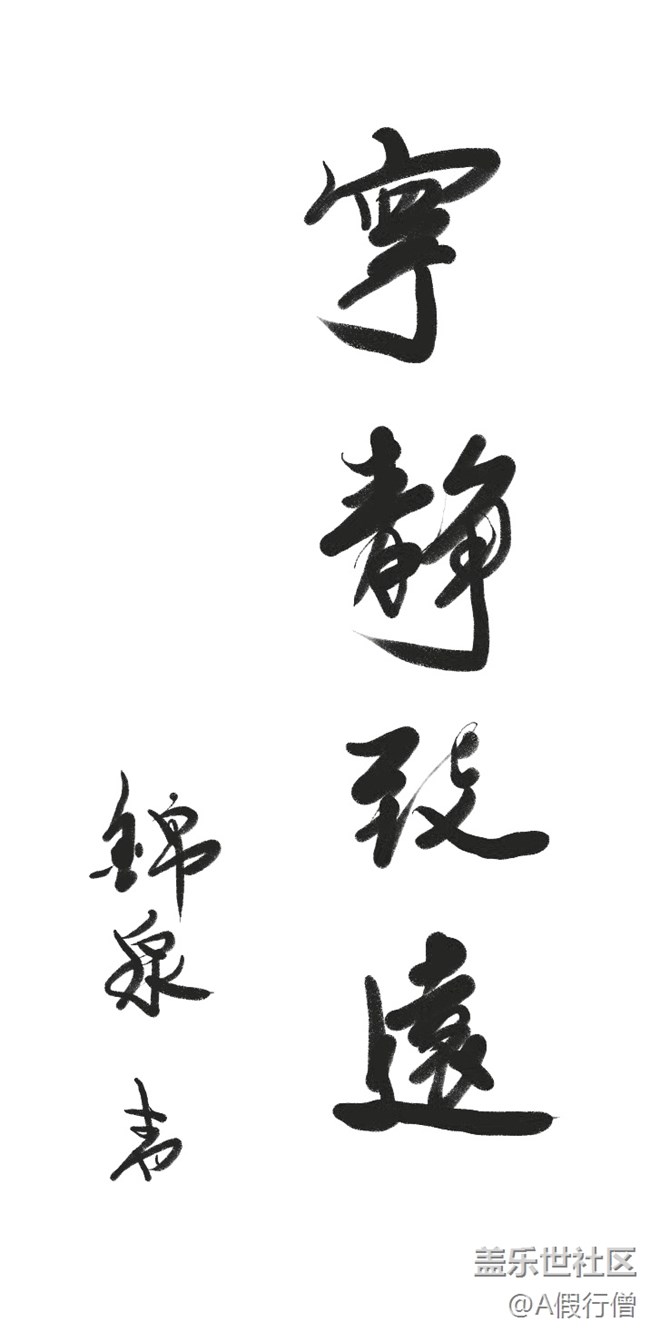 寧靜致遠
錦泉书
盖乐世社区
@A假行僧